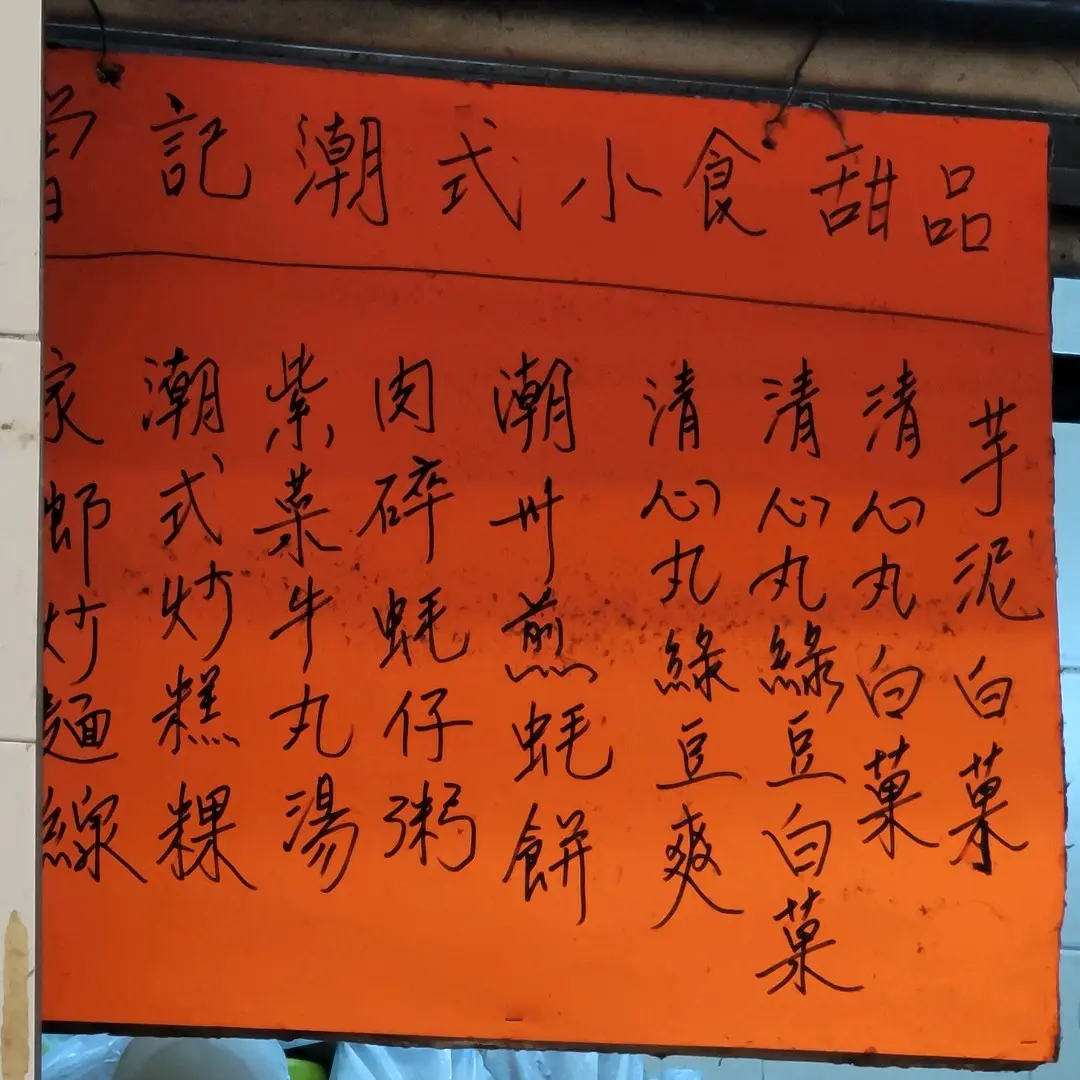 曾記潮式小食甜品
芋泥白菓
清心丸白菓
清心丸綠豆白菓
清心丸綠豆爽
潮州煎蚝餅
肉碎蚝仔粥
紫菜牛丸湯
潮式炒糕粿
家鄉炒麵線